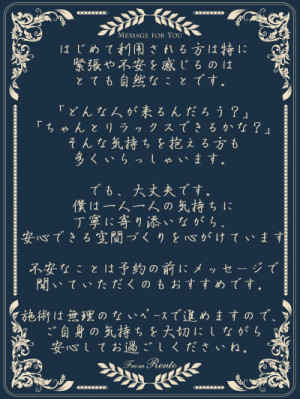 Message for You
はじめて利用される方は特に
緊張や不安を感じるのは
とても自然なことです。
「どんな人が来るんだろう?」
「ちゃんとリラックスできるかな?」
そんな気持ちを抱える方も
多くいらっしゃいます。
でも、大丈夫です。
僕は一人一人の気持ちに
丁寧に寄り添いながら、
安心できる空間づくりを心がけています
不安なことは予約の前にメッセージで
聞いていただくのもおすすめです。
施術は無理のないペースで進めますので、
ご自身の気持ちを大切にしながら
安心してお過ごしくださいね。
From Rento